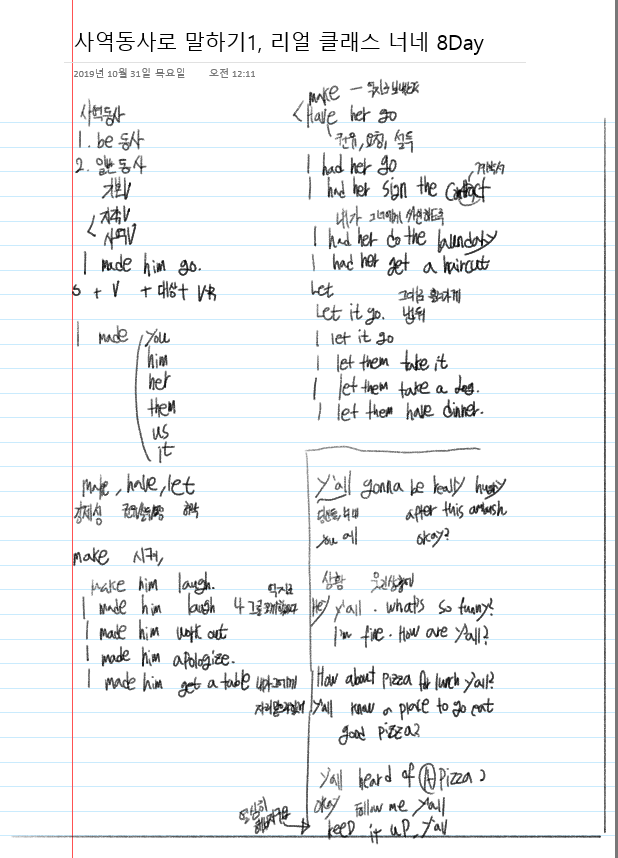 사역동사로 말하기1, 리얼 클래스 너네 8Day
2019년 10월 31일 목요일 오전 12:11
사역동사
1. be 동사
2. 일반동사
기본V
지각V
사역V
I made him go.
S + V + 대상 + VR
I made you
him
her
them
us
it
make, have, let
강제성 허락
make 시켜,
make him laugh.
I made him laugh 억지로
I made him work out
I made him apologize.
I made him get a table 내가 그에게
make - 억지로
Have her go
권유, 요청, 설득
I had her go
I had her sign the contract 계약서
내가 그녀에게 싸인하도록
I had her do the laundary
I had her get a haircut
Let 그대로 흘러가게
Let it go. 냅둬
I let it go
I let them take it
I let them take a dog.
I let them have dinner.
y'all gonna be really hungry
당신들, 너네 after this ambush
you all okay?
상황
Hey y'all. what's so funny?
I'm fine. How are y'all?
How about pizza for lunch y'all?
y'all know a place to go eat
good pizza?
y'all heard of A pizza?
okay follow me y'all
열심히
keep it up, y'all